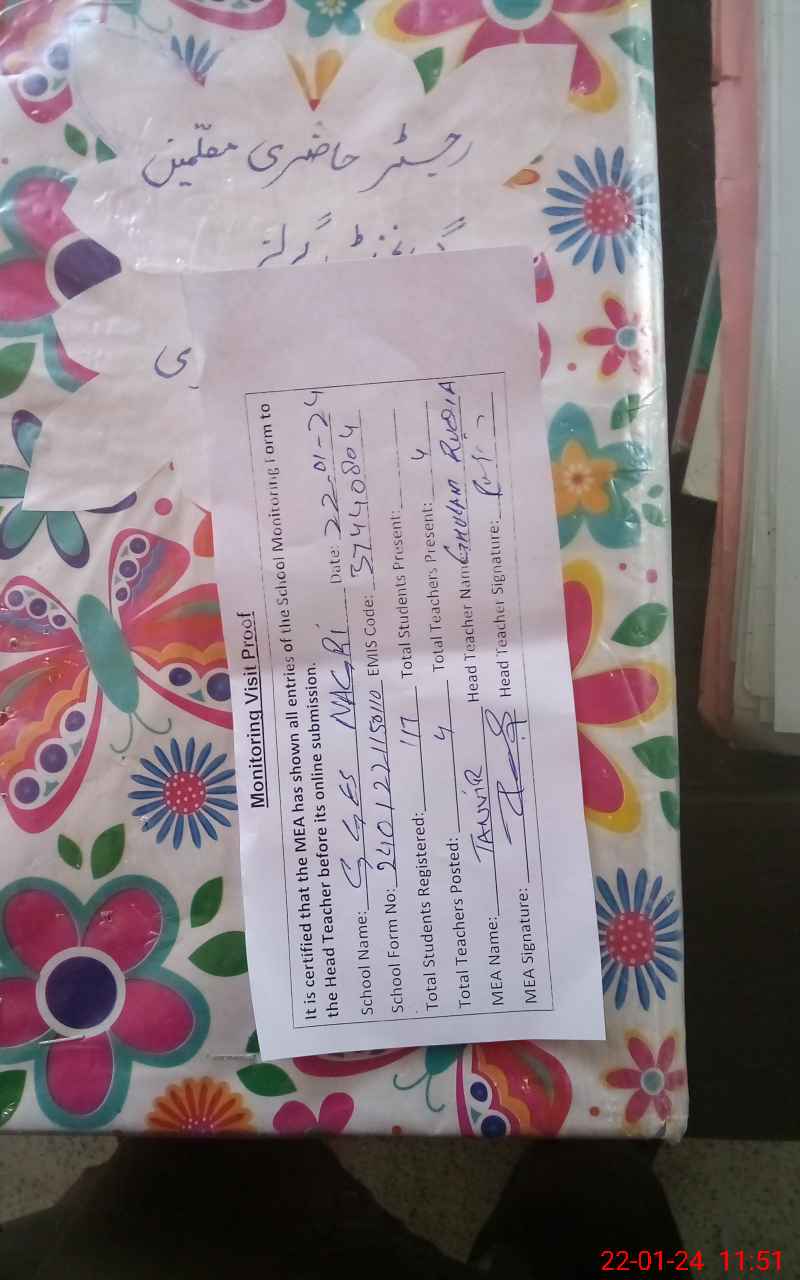 رجسٹر حاضری معلمین
گورنمنٹ گرلز
Monitoring Visit Proof
It is certified that the MEA has shown all entries of the School Monitoring Form to
the Head Teacher before its online submission.
School Name: GGES NAGRI Date: 22-01-24
School Form No: EMIS Code: 37440804
Total Students Registered: 117 Total Students Present:
Total Teachers Posted: 4 Total Teachers Present: 4
MEA Name: TANVIR Head Teacher Name: GHULAM RUQIA
MEA Signature: Head Teacher Signature:
22-01-24 11:51